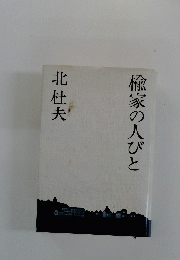 楡家の人びと
北杜夫